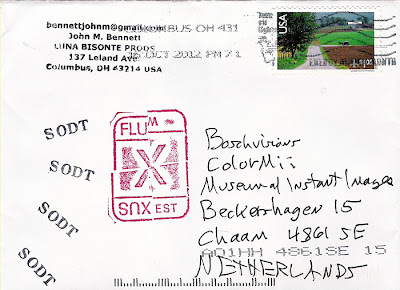 bennettjohnm@gmail.com
John M. Bennett
LUNA BISONTE PRODS
137 Leland Ave
Columbus, OH 43214 USA
COLUMBUS OH 431
OCT 2012 PM 7 1
USA
SODT
SODT
SODT
SODT
FLUM
X
SUX EST
Boschvisions
ColorMii
Museum of Instant Images
Beckershagen 15
Chaam 4861 SE
A01HH 4861SE 15
NETHERLANDS